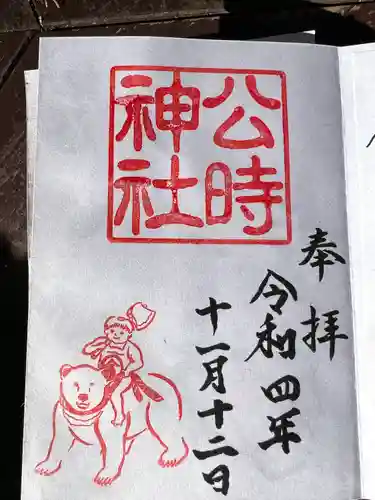 公時
神社
奉拝
令和四年
十一月十二日